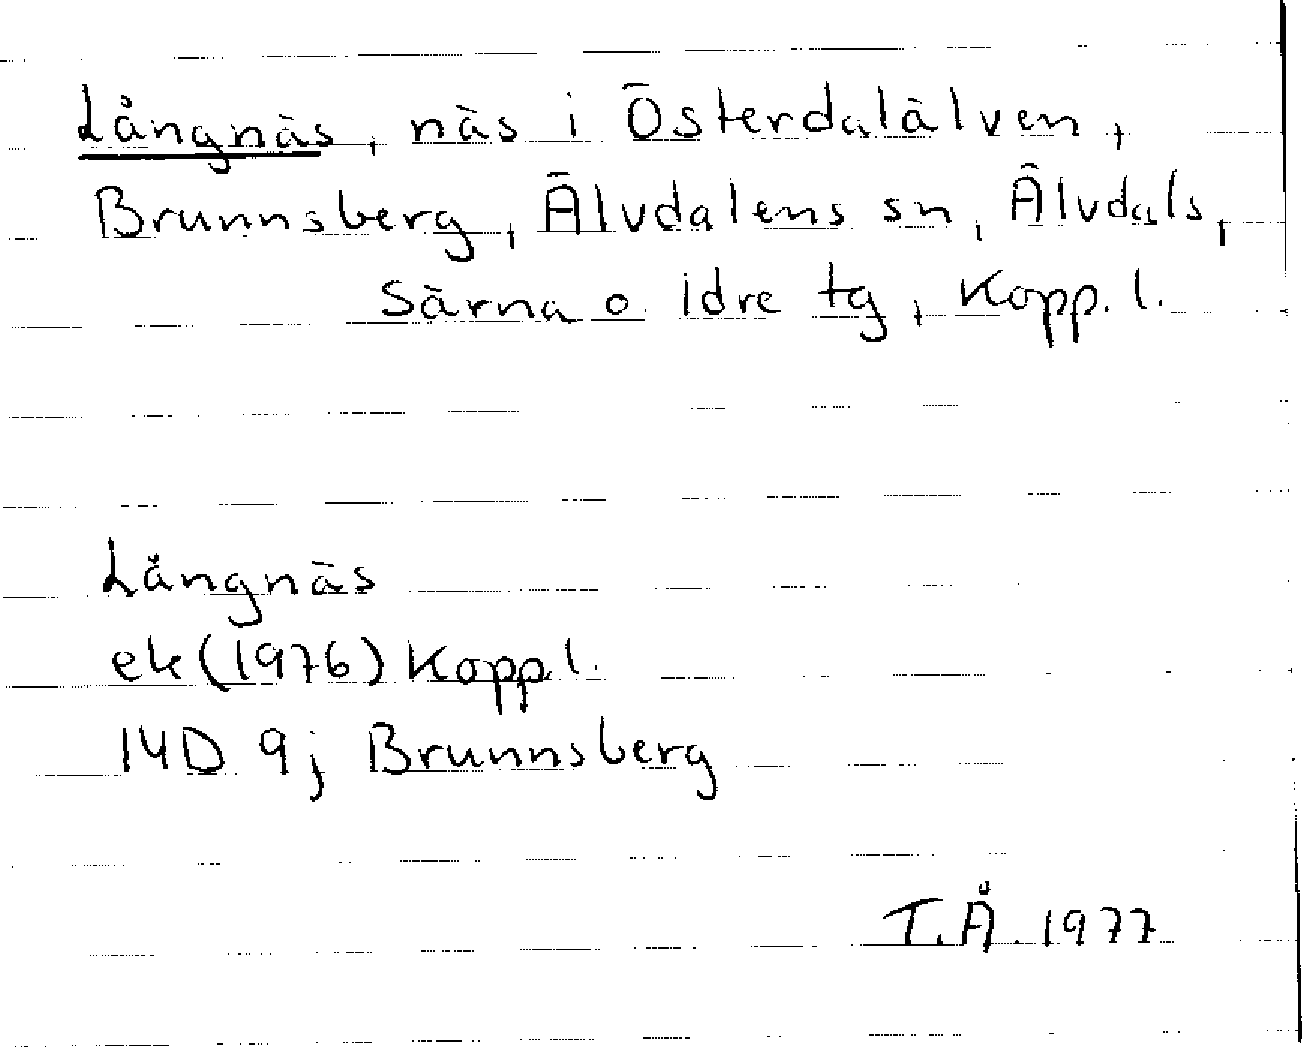 Långnäs, näs i Österdalälven,
Brunnsberg, Älvdalens sn, Älvdals,
Särna o. Idre tg, Kopp. l.
Långnäs
ek (1976) Kopp l.
14D 9j Brunnsberg
T.Å. 1977